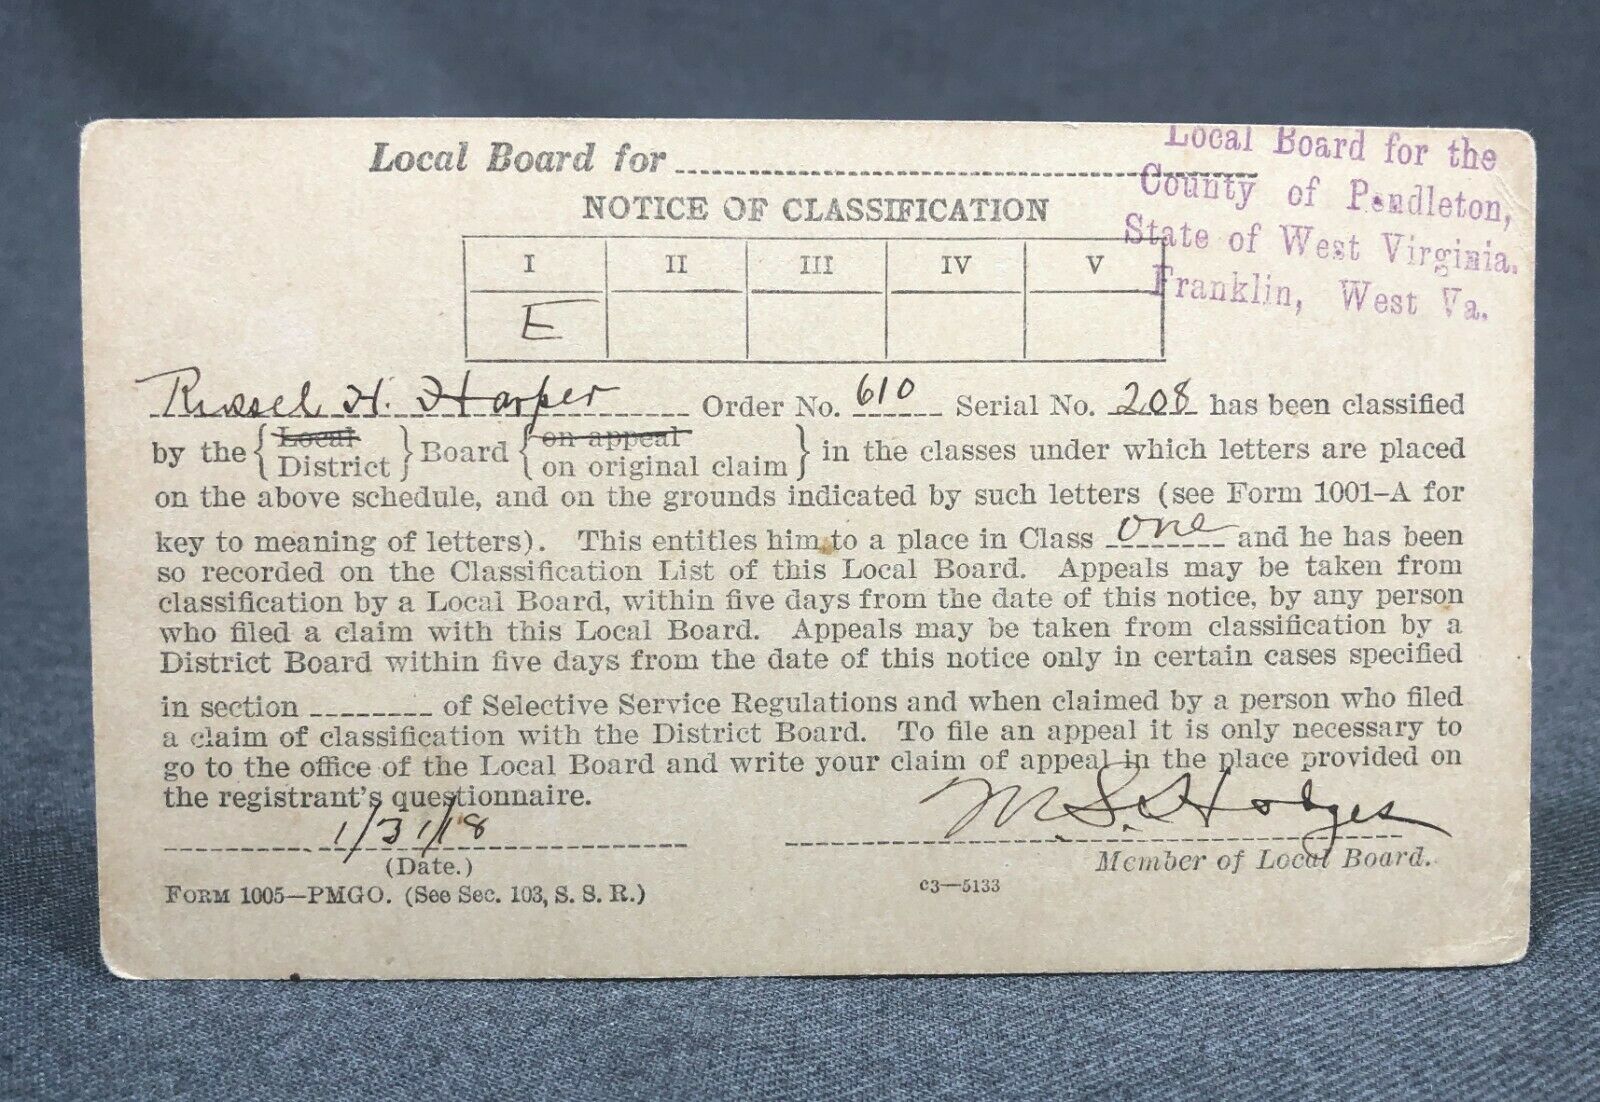 Local Board for
Local Board for the
County of Pendleton,
State of West Virginia.
Franklin, West Va.
NOTICE OF CLASSIFICATION
I II III IV V
E
Russel H. Harper Order No. 610 Serial No. 208 has been classified
by the { Local District } Board { on appeal on original claim } in the classes under which letters are placed
on the above schedule, and on the grounds indicated by such letters (see Form 1001–A for
key to meaning of letters). This entitles him to a place in Class one and he has been
so recorded on the Classification List of this Local Board. Appeals may be taken from
classification by a Local Board, within five days from the date of this notice, by any person
who filed a claim with this Local Board. Appeals may be taken from classification by a
District Board within five days from the date of this notice only in certain cases specified
in section of Selective Service Regulations and when claimed by a person who filed
a claim of classification with the District Board. To file an appeal it is only necessary to
go to the office of the Local Board and write your claim of appeal in the place provided on
the registrant's questionnaire.
1/31/18
M. S. Hodges
(Date.)
Member of Local Board.
FORM 1005—PMGO. (See Sec. 103, S. S. R.)
c3—5133